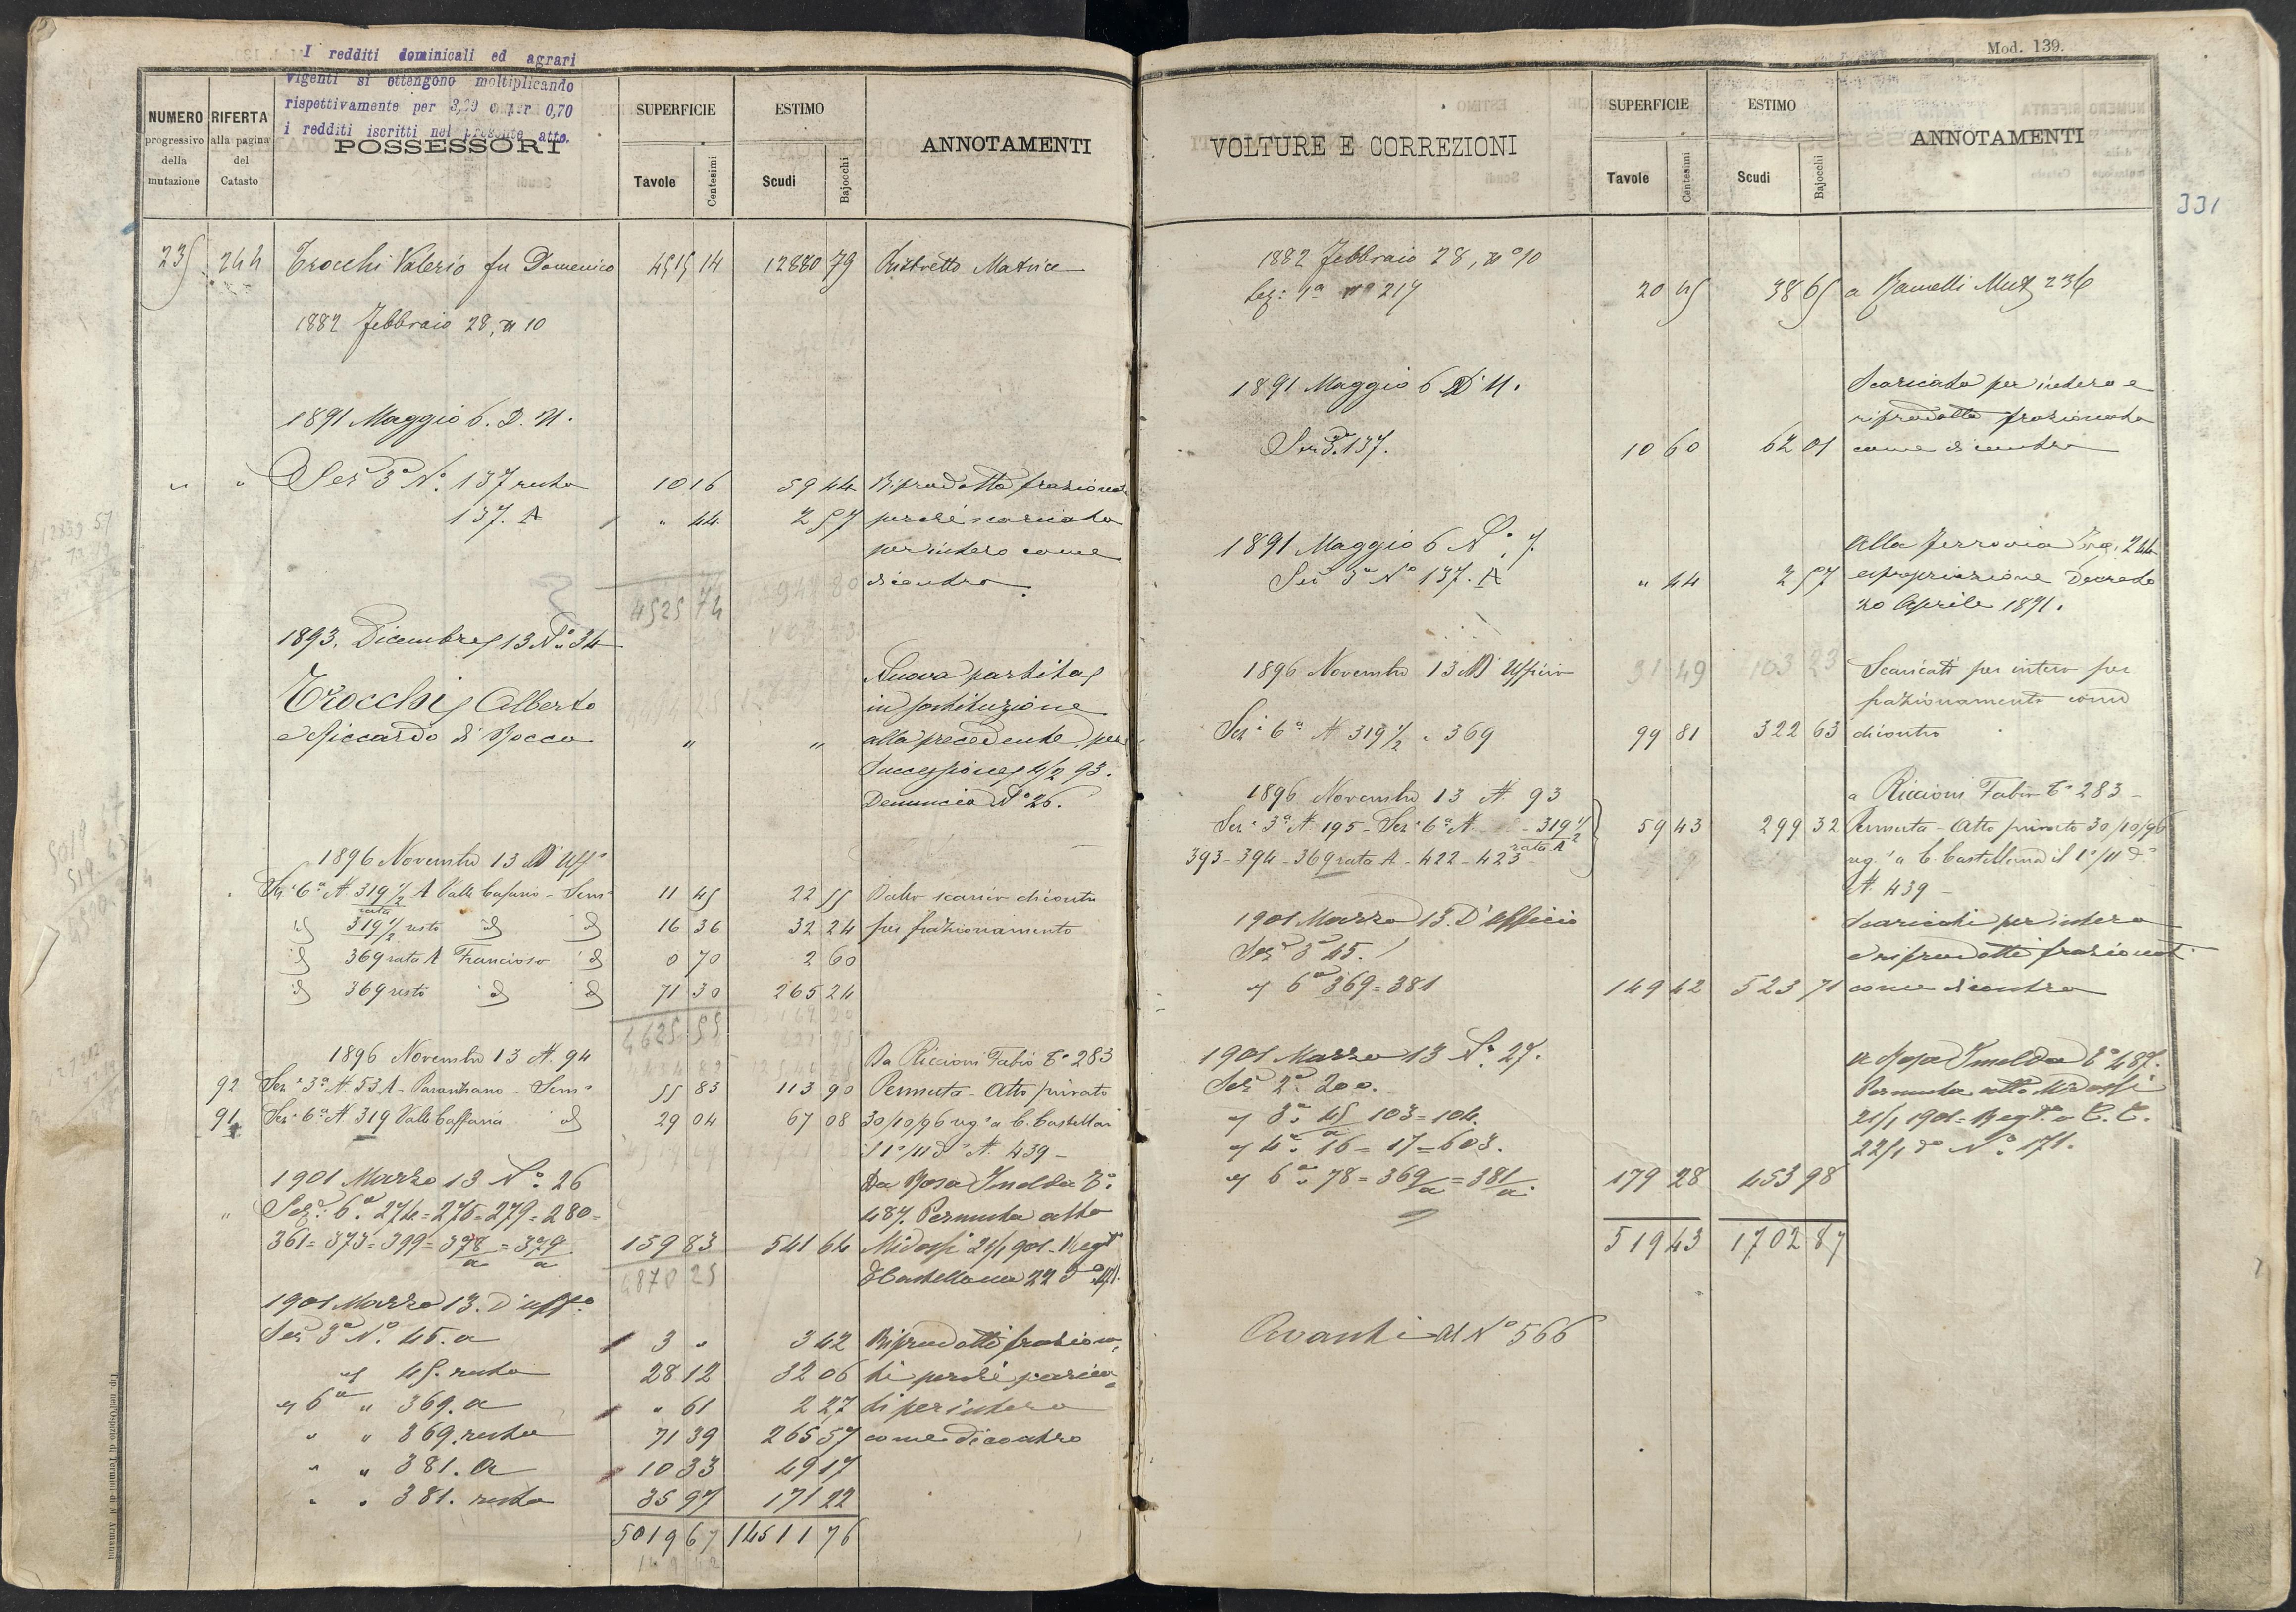 I redditi dominicali ed agrari
vigenti si ottengono moltiplicando
rispettivamente per 3,20 o per 0,70
i redditi iscritti nel presente atto.
NUMERO progressivo della mutazione
RIFERTA alla pagina del Catasto
POSSESSORI
SUPERFICIE
Tavole Centesimi
ESTIMO
Scudi Bajocchi
ANNOTAMENTI
235 244 Trocchi Valerio fu Domenico 4515 14 12880 79 Ristretto Matrice
1882 Febbraio 28, n 10
1891 Maggio 6. D. U.
" " Sez 3ª Nº. 137 resto 10 16 59 44 Riprodotto frazionato
137. A " 44 2 57 perchè scaricato
per intero come
dicontro.
4525 74
1893. Dicembre 13 Nº 34
Trocchi Alberto
e Riccardo di Rocco " "
Nuova partita
in sostituzione
alla precedente per
Successione 4/2 93.
Denuncia Nº 26.
1896 Novembre 13 D' Uffº
Sez. 6ª N 319 1/2 A rata Valle Cafaro - Sem 11 45 22 55 Dallo scarico dicontro
id 319 1/2 resto id id 16 36 32 24 per frazionamento
id 369 rata A Francioso id 0 70 2 60
id 369 resto id id 71 30 265 24
4625 55
1896 Novembre 13 N. 94 Da Riccioni Fabio Tº 283
92 Sez. 3ª N 53 A - - Sem 55 83 113 90 Permuta - Atto privato
94 Sez. 6ª N 319 Valle Caffaria id 29 04 67 08 30/10/96 reg. a C. Castellana
il 1º/11 dº N. 439 -
1901 Marzo 13 Nº. 26 Da Rosa Imelda Tº.
" Sez. 6ª 274 = 275 = 279 = 280 = 487. Permuta atto
361 = 373 = 399 = 378/a = 379/a 159 83 541 64 Midossi 21/1 901 - Regº
4870 25 Castellana 22 dº
1901 Marzo 13. D'uffº
Sez 3ª Nº. 45. a 3 " 3 42 Riprodotti frazion
" 45. resto 28 12 32 06 ti perchè scarica
" 6ª " 369. a " 61 2 27 ti per intero
" " 369. resto 71 39 265 57 come dicontro
" " 381. a 10 33 49 17
" " 381. resto 35 97 171 22
5019 67 14511 76
Mod. 139.
331
VOLTURE E CORREZIONI
SUPERFICIE
Tavole Centesimi
ESTIMO
Scudi Bajocchi
ANNOTAMENTI
1882 Febbraio 28, nº 10
Sez: 1ª nº 217 20 45 38 65 a Ramelli 236
1891 Maggio 6 D' U.
Sez 3ª. 137. 10 60 62 01
Scaricato per intero e
riprodotto frazionato
come dicontro
1891 Maggio 6 Nº. 7.
Sez 3ª Nº 137. A " 44 2 57
Alla Ferrovia Pag. 244
espropriazione Decreto
20 Aprile 1891.
1896 Novembre 13 D' Ufficio 91 49 103 23
Sez. 6ª N 319 1/2 - 369 99 81 322 63
Scaricati per intero per
frazionamento come
dicontro
1896 Novembre 13 N 93
Sez. 3ª N 195 - Sez. 6ª N - 319 1/2 rata A
393 - 394 - 369 rata A - 422 - 423 - 59 43 299 32
a Riccioni Fabio Tº 283 -
Permuta - Atto privato 30/10/96
reg. a C. Castellana il 1º/11 dº
N. 439 -
1901 Marzo 13. D'Ufficio
Sez 3ª 45.
" 6ª 369 = 381 149 42 523 71
Scaricati per intero
e riprodotti frazionati
come dicontro
1901 Marzo 13 Nº. 27.
Sez 2ª. 200.
" 3ª. 45/a 103 = 104.
" 4ª. 16 = 17 = 603.
" 6ª. 78 = 369/a = 381/a. 179 28 453 98
a Rosa Imelda Tº 487.
Permuta atto Midossi
21/1 1901 = Regº a C. C.
22/1 dº Nº. 171.
519 43 1702 87
Avanti al Nº 566